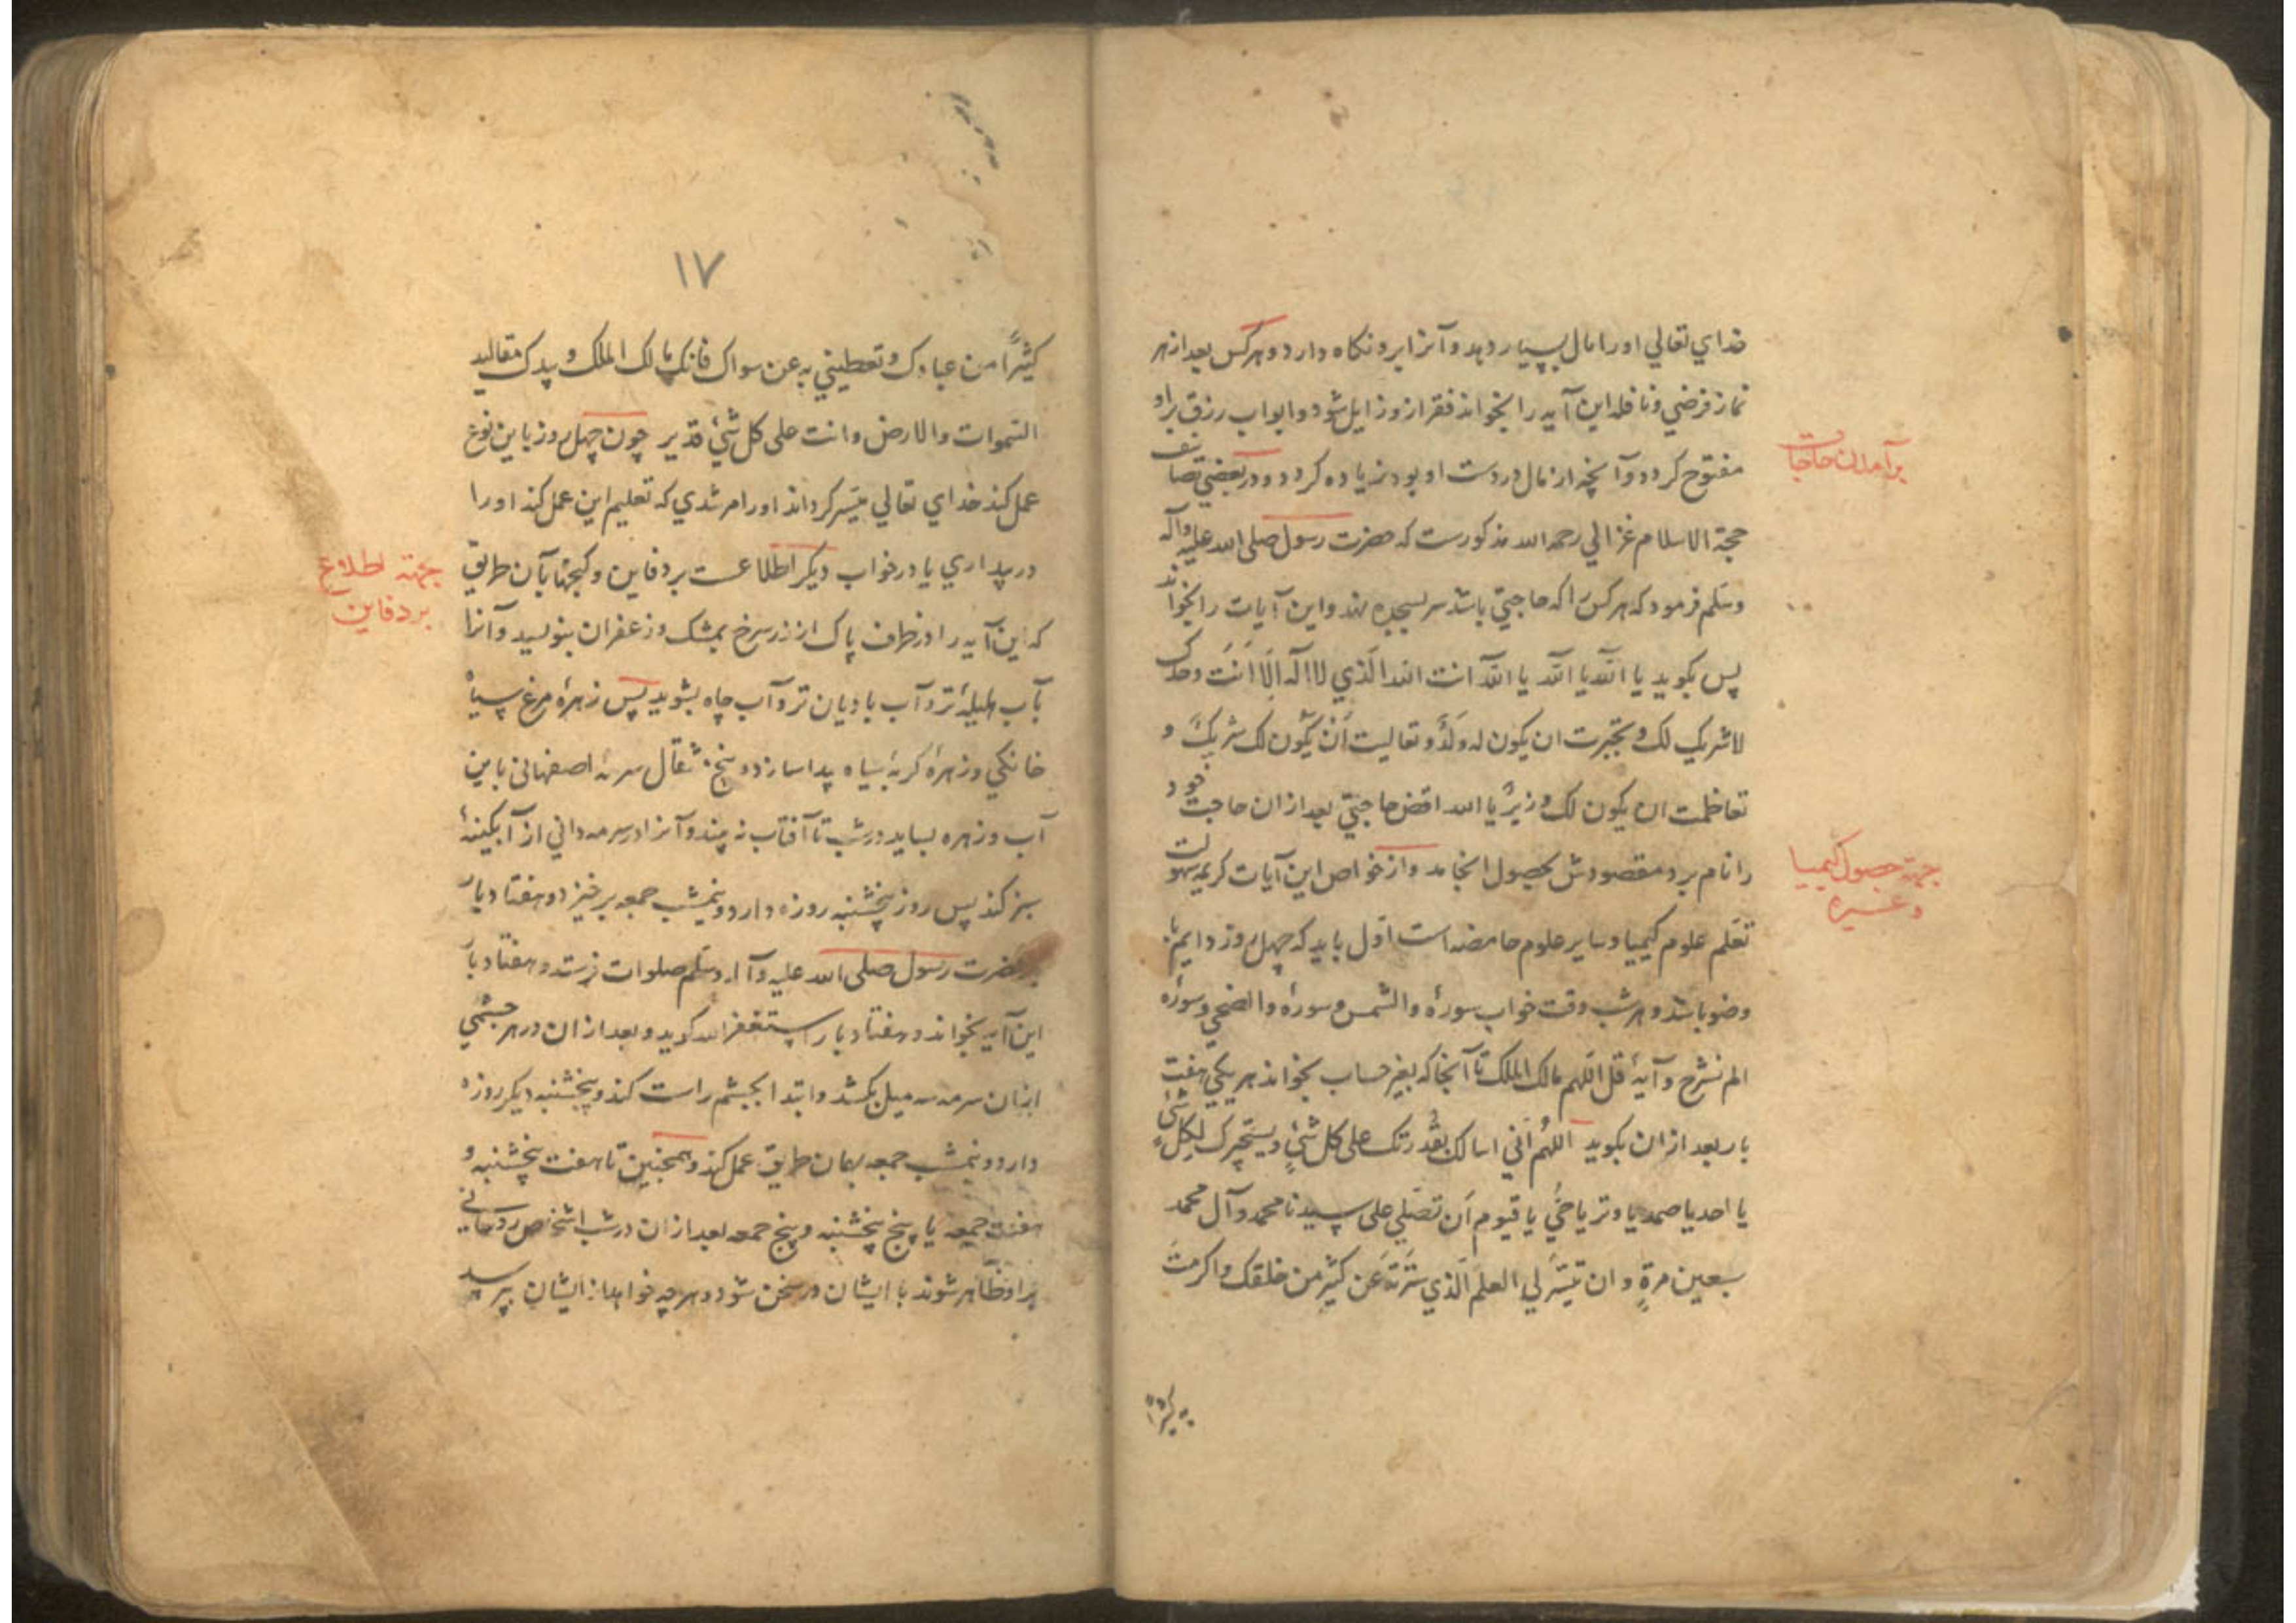 خداي تعالي اورا مال بسيار دهد و آنرا برو نكاه دارد و هركس بعد از هر
نماز فرضي و نافله اين آيه را بخواند فقر ازو زايل شود و ابواب رزق براو
مفتوح كردد و آنچه از مال در دست او بود زياده كردد و در بعضي تصانيف
برآمدن حاجات
حجة الاسلام غزالي رحمه الله مذكورست كه حضرت رسول صلى الله عليه وآله
وسلم فرمود كه هركس را كه حاجتي باشد سر بسجده نهد و اين آيات را بخواند
پس بكويد يا الله يا الله يا الله انت الله الذي لا اله الا انت وحدك
لا شريك لك و تجبرت ان يكون له ولد و تعاليت ان يكون لك شريك و
تعاظمت ان يكون لك وزير يا الله اقض حاجتي بعد از ان حاجت خود
را نام برد مقصودش بحصول انجامد و از خواص اين آيات كريمه سهولت
جهته حصول كيميا
و غيره
تعلم علوم كيميا و ساير علوم غامضه است اول بايد كه چهل روز دايم با
وضو باشد و هر شب وقت خواب سورهٔ والشمس و سورهٔ والضحي و سورهٔ
الم نشرح و آيهٔ قل اللهم مالك الملك تا آنجا كه بغير حساب بخواند هر يكي هفت
بار بعد از ان بكويد اللهم اني اسالك بقدرتك على كل شئ لكل شئ
يا احد يا صمد يا وتر يا حي يا قيوم ان تصلي على سيدنا محمد و آل محمد
سبعين مرة و ان تيسر لي العلم الذي سترته عن كثير من خلقك و اكرمت
به كثيرا
١٧
كثيرا من عبادك و تعطيني به عن سواك فانك مالك الملك و بيدك مقاليد
السموات والارض وانت على كل شئ قدير چون چهل روز باين نوع
عمل كند خداي تعالي ميسر كرداند اورا مرشدي كه تعليم اين عمل كند اورا
در بيداري يا در خواب ديكر اطلاعست بر دفاين و كنجها بآن طريق
جهته اطلاع
بر دفاين
كه اين آيه را در ظرف پاك از زر سرخ بمشك و زعفران بنويسد و آنرا
بآب هليلهٔ تر و آب باديان تر و آب چاه بشويد پس زهرهٔ مرغ سياه
خانكي و زهرهٔ كربهٔ سياه پيدا سازد و پنج مثقال سرمهٔ اصفهاني باين
آب و زهره بسايد در شب تا آفتاب نه بيند و آنرا در سرمه داني از آبكينهٔ
سبز كند پس روز پنجشنبه روزه دارد و نيمشب جمعه برخيزد و هفتاد بار
بر حضرت رسول صلى الله عليه وآله وسلم صلوات فرستد و هفتاد بار
اين آيه بخواند و هفتاد بار استغفر الله كويد و بعد از ان در هر چشمي
ازان سرمه سه ميل بكشد و ابتدا بچشم راست كند و پنجشنبه ديكر روزه
دارد و نيمشب جمعه بهمان طريق عمل كند و همچنين تا هفت پنجشنبه و
هفت جمعه يا پنج پنجشنبه و پنج جمعه بعد از ان در شب اشخاص روحاني
براو ظاهر شوند با ايشان در سخن شود و هرچه خواهد از ايشان بپرسد